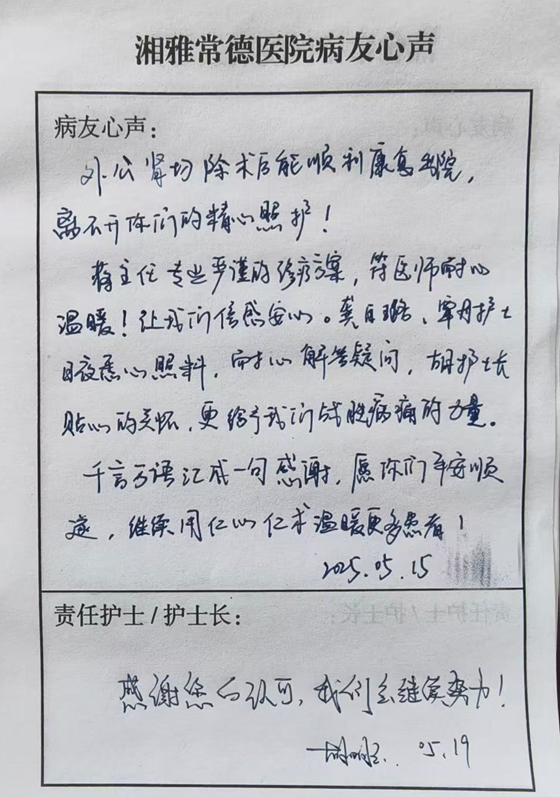 湘雅常德医院病友心声
病友心声：
外公肾切除术后能顺利康复出院，
离不开你们的精心照护！
蒋主任专业严谨的诊疗方案，符医师耐心
温暖！让我们倍感安心。龚自璐、覃丹护士
日夜悉心照料，耐心解答疑问，胡护士长
贴心的关怀，更给予我们战胜病痛的力量。
千言万语汇成一句感谢，愿你们平安顺
遂，继续用仁心仁术温暖更多患者！
2025.05.15
责任护士/护士长：
感谢您的认可，我们会继续努力！
05.19